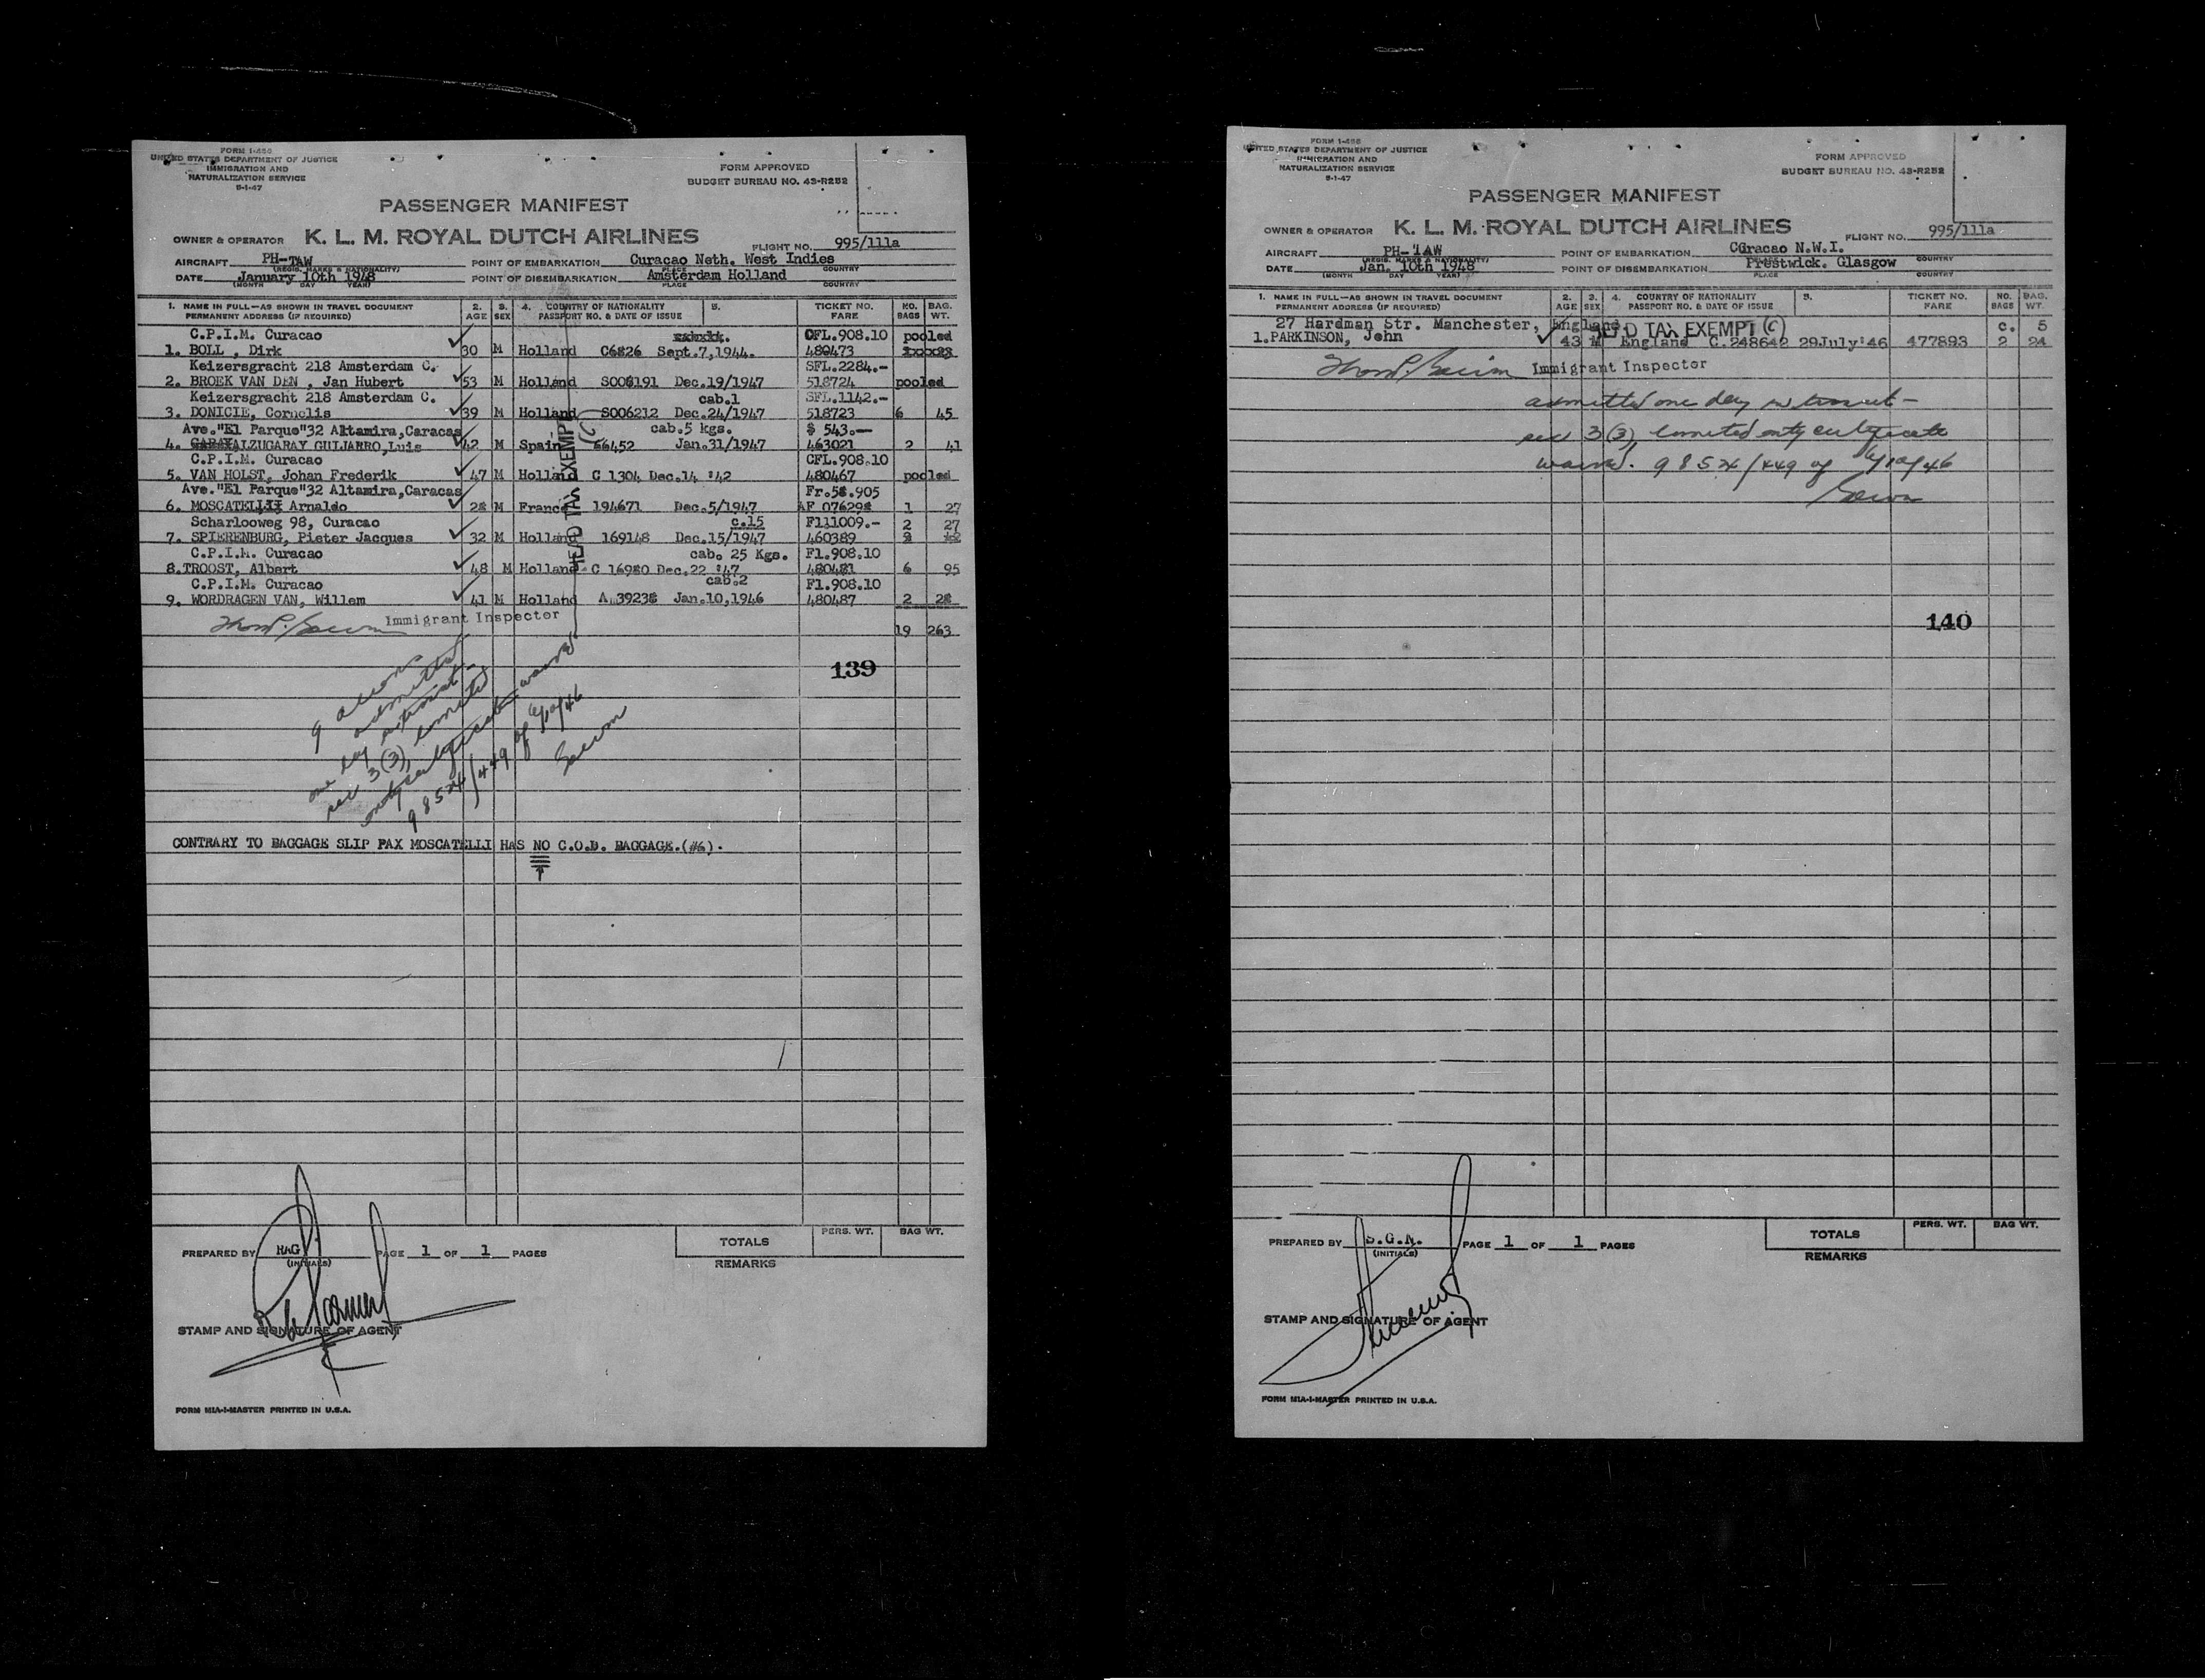 FORM I-466
UNITED STATES DEPARTMENT OF JUSTICE
IMMIGRATION AND
NATURALIZATION SERVICE
5-1-47
FORM APPROVED
BUDGET BUREAU NO. 43-R252
PASSENGER MANIFEST
OWNER & OPERATOR K. L. M. ROYAL DUTCH AIRLINES FLIGHT NO. 995/111a
AIRCRAFT PH-TAW POINT OF EMBARKATION Curacao Neth. West Indies
(REGIS. MARKS & NATIONALITY) PLACE COUNTRY
DATE January 10th 1948 POINT OF DISEMBARKATION Amsterdam Holland
(MONTH DAY YEAR) PLACE COUNTRY
1. NAME IN FULL—AS SHOWN IN TRAVEL DOCUMENT 2. 3. 4. COUNTRY OF NATIONALITY 5. TICKET NO. NO. BAG.
PERMANENT ADDRESS (IF REQUIRED) AGE SEX PASSPORT NO. & DATE OF ISSUE FARE BAGS WT.
C.P.I.M. Curacao CFL.908.10 pooled
1. BOLL , Dirk 30 M Holland C6826 Sept.7,1944. 480473
Keizersgracht 218 Amsterdam C. SFL.2284.-
2. BROEK VAN DEN , Jan Hubert 53 M Holland S006191 Dec.19/1947 518724 pooled
Keizersgracht 218 Amsterdam C. cab.1 SFL.1142.-
3. DONICIE, Cornelis 39 M Holland S006212 Dec.24/1947 518723 6 45
Ave."El Parque"32 Altamira,Caracas cab.5 kgs. $ 543.—
4. ALZUGARAY GUIJARRO,Luis 42 M Spain 66452 Jan.31/1947 463021 2 41
C.P.I.M. Curacao CFL.908.10
5. VAN HOLST, Johan Frederik 47 M Holland C 1304 Dec.14 '42 480467 pooled
Ave."El Parque"32 Altamira,Caracas Fr.58.905
6. MOSCATELLI Arnaldo 28 M France 194671 Dec.5/1947 AF 076298 1 27
Scharlooweg 98, Curacao c.15 Fl1009.- 2 27
7. SPIERENBURG, Pieter Jacques 32 M Holland 169148 Dec.15/1947 460389
C.P.I.M. Curacao cab. 25 Kgs. Fl.908.10
8.TROOST, Albert 48 M Holland C 16980 Dec.22 '47 480481 6 95
C.P.I.M. Curacao cab.2 Fl.908.10
9. WORDRAGEN VAN, Willem 41 M Holland A 39238 Jan.10,1946 480487 2 28
HEAD TAX EXEMPT (C)
Immigrant Inspector
19 263
139
9 aliens
admitted
one day in transit
sec 3(3), limited
entry certificate waived
98524/449 of 6/10/46
CONTRARY TO BAGGAGE SLIP PAX MOSCATELLI HAS NO C.O.D. BAGGAGE.(#6).
PREPARED BY HAG PAGE 1 OF 1 PAGES
(INITIALS)
TOTALS PERS. WT. BAG WT.
REMARKS
STAMP AND SIGNATURE OF AGENT
FORM MIA-I-MASTER PRINTED IN U.S.A.
FORM I-466
UNITED STATES DEPARTMENT OF JUSTICE
IMMIGRATION AND
NATURALIZATION SERVICE
5-1-47
FORM APPROVED
BUDGET BUREAU NO. 43-R252
PASSENGER MANIFEST
OWNER & OPERATOR K. L. M. ROYAL DUTCH AIRLINES FLIGHT NO. 995/111a
AIRCRAFT PH-TAW POINT OF EMBARKATION Curacao N.W.I.
(REGIS. MARKS & NATIONALITY) PLACE COUNTRY
DATE Jan. 10th 1948 POINT OF DISEMBARKATION Prestwick. Glasgow
(MONTH DAY YEAR) PLACE COUNTRY
1. NAME IN FULL—AS SHOWN IN TRAVEL DOCUMENT 2. 3. 4. COUNTRY OF NATIONALITY 5. TICKET NO. NO. BAG.
PERMANENT ADDRESS (IF REQUIRED) AGE SEX PASSPORT NO. & DATE OF ISSUE FARE BAGS WT.
27 Hardman Str. Manchester, England HEAD TAX EXEMPT (C) c. 5
1.PARKINSON, John 43 M England C.248642 29July'46 477893 2 24
Immigrant Inspector
admitted one day in transit —
sec 3(3), limited entry certificate
waived. 98524/449 of 6/10/46
140
PREPARED BY PAGE 1 OF 1 PAGES
(INITIALS)
TOTALS PERS. WT. BAG WT.
REMARKS
STAMP AND SIGNATURE OF AGENT
FORM MIA-I-MASTER PRINTED IN U.S.A.